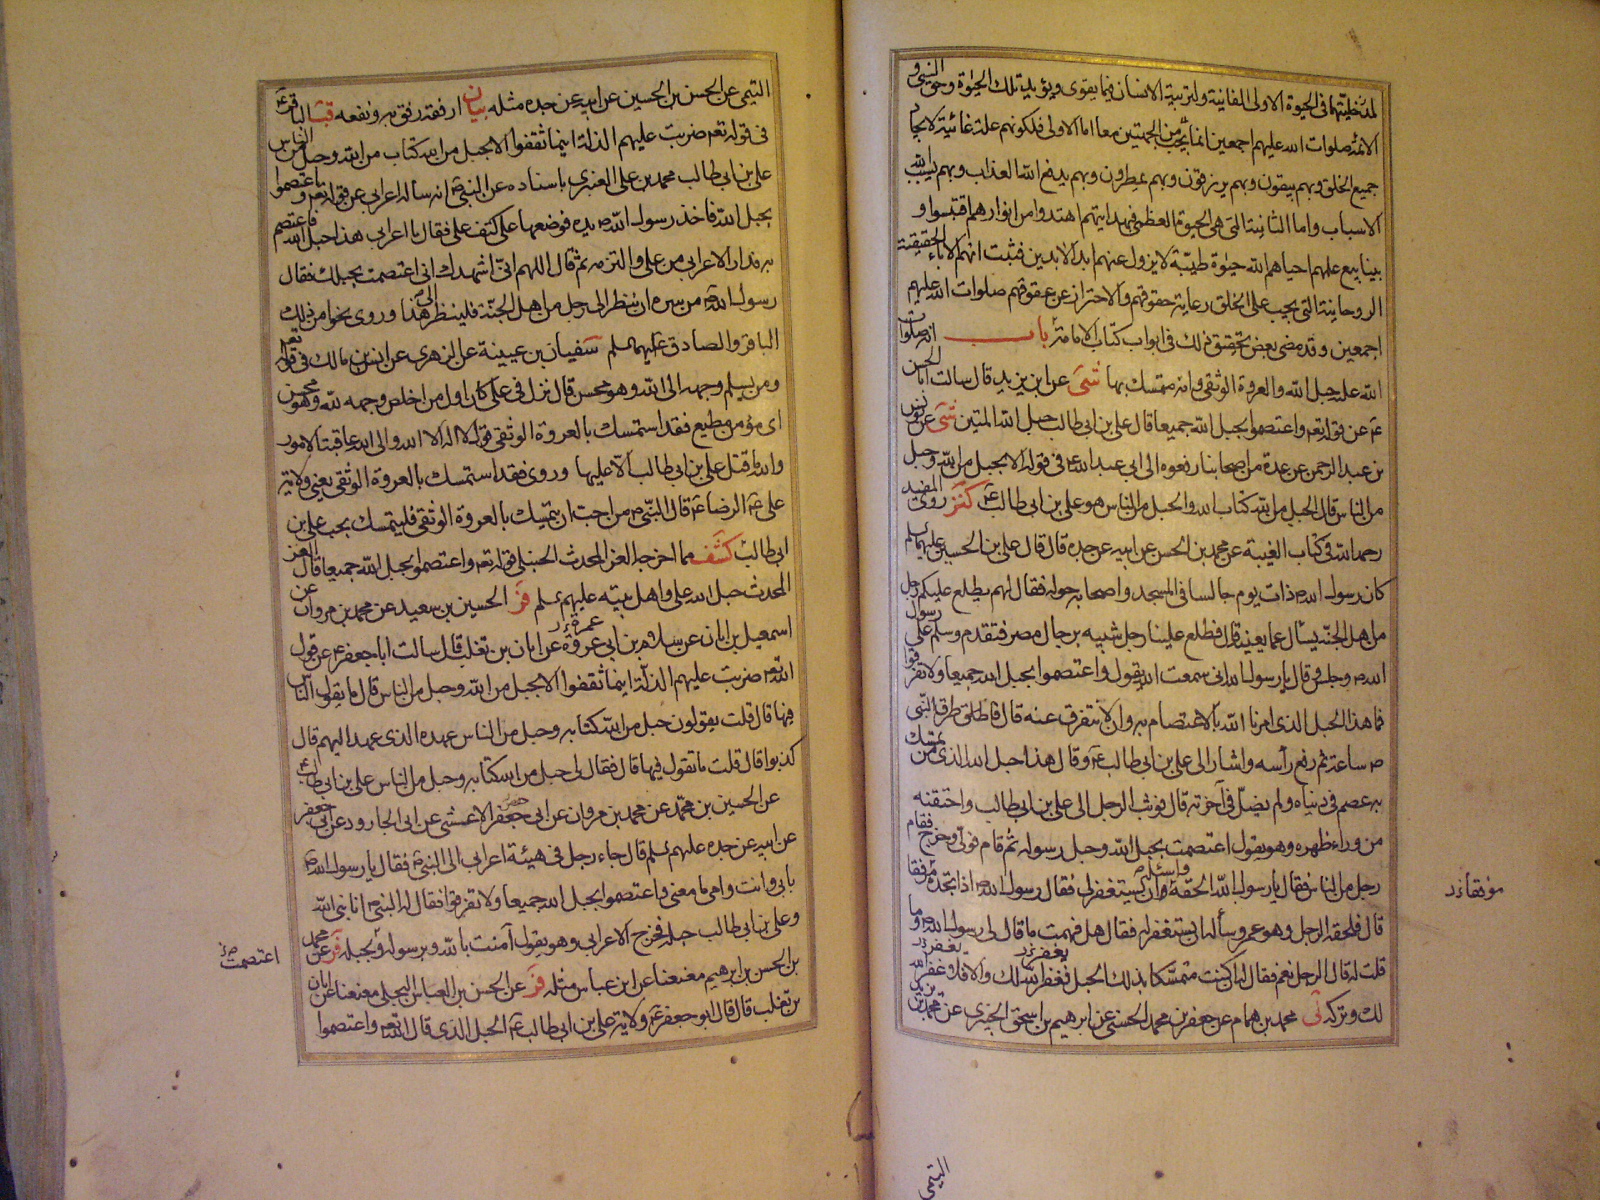 لمدخليتهما في الحيوة الاولى الفانية ولتربية الانسان بما يقوى ويؤيد به تلك الحيوة وحق النبي و
الائمة صلوات الله عليهم اجمعين انما يجب من الجهتين معا اما الاولى فلكونهم علة غائية لايجاد
جميع الخلق وبهم يبقون وبهم يرزقون وبهم يمطرون وبهم يدفع الله العذاب وبهم يسبب الله
الاسباب واما الثانية التي هي الحيوة العظمى فبهدايتهم اهتدوا ومن انوارهم اقتبسوا و
بينابيع علمهم احياهم الله حيوة طيبة لا يزول عنهم ابد الابدين فثبت انهم الاباء الحقيقية
الروحانية التي يجب على الخلق رعاية حقوقهم والاحتراز عن عقوقهم صلوات الله عليهم
اجمعين وقد مضى بعض تحقيق ذلك في ابواب كتاب الامامة باب انه صلوات
الله عليه حبل الله والعروة الوثقى وانه متمسك بها شى عن ابن يزيد قال سالت ابا الحسن
ع عن قوله تعه واعتصموا بحبل الله جميعا قال علي بن ابي طالب حبل الله المتين شى عن يونس
بن عبد الرحمن عن عدة من اصحابنا رفعوه الى ابي عبد الله ع في قوله الا بحبل من الله وحبل
من الناس قال الحبل من الله كتاب الله والحبل من الناس هو علي بن ابي طالب ع كنز روى المفيد
رحمه الله في كتاب الغيبة عن محمد بن الحسن عن ابيه عن جده قال قال علي بن الحسين عليهما السلم
كان رسول الله ص ذات يوم جالسا في المسجد واصحابه حوله فقال لهم يطلع عليكم رجل
من اهل الجنة يسأل عما يعنيه قال فطلع علينا رجل شبيه برجال مصر فتقدم وسلم على رسول
الله ص وجلس وقال يا رسول الله اني سمعت الله يقول واعتصموا بحبل الله جميعا ولا تفرقوا
فما هذا الحبل الذي امرنا الله بالاعتصام به وان لا نتفرق عنه قال فاطلق طرق النبي
ص ساعة ثم رفع رأسه واشار الى علي بن ابي طالب ع وقال هذا حبل الله الذي من تمسك
به عصم في دنياه ولم يضل في آخرته قال فوثب الرجل الى علي بن ابي طالب واحتضنه
من وراء ظهره وهو يقول اعتصمت بحبل الله وحبل رسوله ثم قام فولى وخرج فقام
رجل من الناس فقال يا رسول الله الحقه واسئله وان يستغفر لي فقال رسول الله ص اذا تجده موفقا
قال فلحقه الرجل وهو عمر وسأله ان يستغفر له فقال هل فهمت ما قال لي رسول الله ص وما
قلت له قال الرجل نعم فقال له ان كنت متمسكا بذلك الحبل فغفر الله لك والا فلا غفر الله
لك وتركه نى محمد بن همام عن جعفر بن محمد الحسني عن ابرهيم بن اسحق الخيبري عن محمد بن يزيد
التيمي
التيمي عن الحسن بن الحسين عن ابيه عن جده مثله بيان ارفقه رفق به ونفعه قب الباقر ع
في قوله تعه ضربت عليهم الذلة اينما ثقفوا الا بحبل من الله كتاب من الله وحبل من الناس
علي بن ابي طالب محمد بن علي العنبري باسناده عن النبي ص انه ساله اعرابي عن قوله تعه واعتصموا
بحبل الله فاخذ رسول الله ص يده فوضعها على كتف علي فقال يا اعرابي هذا حبل الله فاعتصم
به فدار الاعرابي من علي والتزمه ثم قال اللهم اني اشهدك اني اعتصمت بحبلك فقال
رسول الله ص من سره ان ينظر الى رجل من اهل الجنة فلينظر الى هذا وروى نحوا من ذلك
الباقر والصادق عليهما السلم سفيان بن عيينة عن الزهري عن انس بن مالك في قوله تعه
ومن يسلم وجهه الى الله وهو محسن قال نزل في علي كان اول من اخلص وجهه لله وهو محسن
اي مؤمن مطيع فقد استمسك بالعروة الوثقى قوله لا اله الا الله والى الله عاقبة الامور
والله ما قتل علي بن ابي طالب الا عليها وروى فقد استمسك بالعروة الوثقى يعني ولاية
علي ع الرضا ع قال النبي ص من احب ان يتمسك بالعروة الوثقى فليتمسك بحب علي بن
ابي طالب كشف مما اخرجه العز المحدث الحنبلي قوله تعه واعتصموا بحبل الله جميعا قال العز
المحدث حبل الله علي واهل بيته عليهم السلم فر الحسين بن سعيد عن محمد بن مروان عن
اسمعيل بن ابان عن سلام بن ابي عمرة عروة عن ابان بن تغلب قال سالت ابا جعفر ع عن قول
الله تعه ضربت عليهم الذلة اينما ثقفوا الا بحبل من الله وحبل من الناس قال ما يقول الناس
فيها قال قلت يقولون حبل من الله كتابه وحبل من الناس عهده الذي عهد اليهم قال
كذبوا قال قلت ما تقول فيها قال فقال لي حبل من الله كتابه وحبل من الناس علي بن ابي طالب ع
عن الحسين بن محمد عن محمد بن مروان عن ابي حفص جعفر الاعشى عن ابي الجارود عن ابي جعفر
عن ابيه عن جده عليهم السلم قال جاء رجل في هيئة اعرابي الى النبي ص فقال يا رسول الله ص
بابي وانت وامي ما معنى واعتصموا بحبل الله جميعا ولا تفرقوا فقال له النبي ص انا نبي الله
وعلي بن ابي طالب حبله فخرج الاعرابي وهو يقول آمنت بالله وبرسوله وبحبله فر عن محمد
بن الحسن بن ابرهيم معنعنا عن ابن عباس مثله فر عن الحسن بن العباس البجلي معنعنا عن ابان
بن تغلب قال قال ابو جعفر ع ولاية علي بن ابي طالب ع الحبل الذي قال الله تعه واعتصموا
اعتصمت